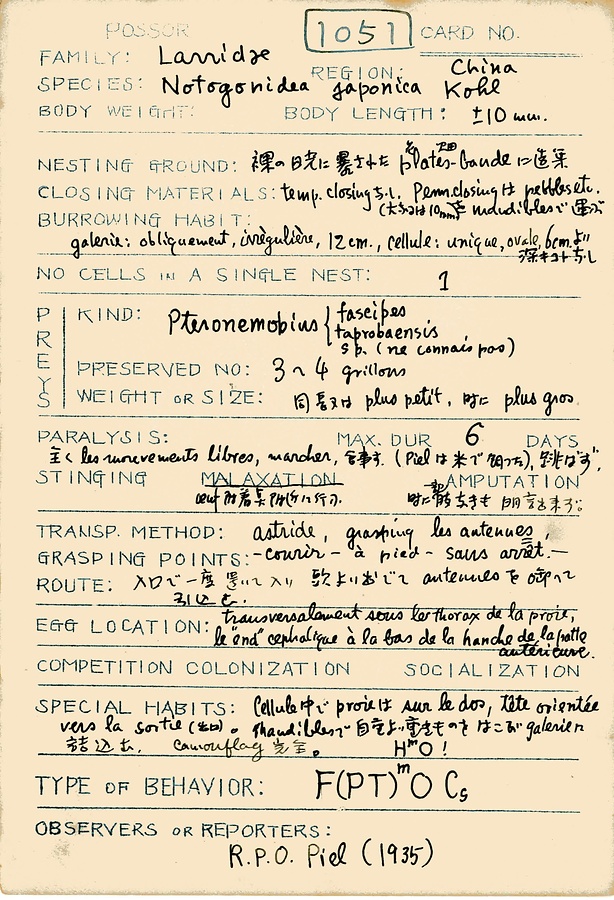 POSSOR 1051 CARD NO.
FAMILY: Larridae
REGION: China
SPECIES: Notogonidea japonica Kohl
BODY WEIGHT: BODY LENGTH: ±10 mm.
NESTING GROUND: 裸の日光に曝された plates-bande に造巣
CLOSING MATERIALS: temp. closingなし. Perm. closingは pebbles etc.
(大きさは10mm) mandiblesで運ぶ
BURROWING HABIT:
galerie: obliquement, irrégulière, 12 cm., cellule: unique, ovale, 6cm.より
深キコトなし
NO CELLS IN A SINGLE NEST: 1
PREYS
KIND: Pteronemobius { fascipes
taprobaensis
sp. (ne connais pas)
PRESERVED NO: 3~4 grillons
WEIGHT OR SIZE: 同長又は plus petit, 時に plus gros
PARALYSIS: MAX. DUR 6 DAYS
全く les mouvements libres, marcher, 食事す. (Pielは米で飼った), 跳ばず,
STINGING MALAXATION AMPUTATION
TRANSP. METHOD: astride, grasping les antennes,
GRASPING POINTS: -courir- à pied- sans arrêt.-
ROUTE: 入口で一度置いて入り 頭より出でて antennes を
引込む.
EGG LOCATION: transversalement sous les thorax de la proie,
le "end" cephalique à la bas de la hanche de la patte
antérieure.
COMPETITION COLONIZATION SOCIALIZATION
SPECIAL HABITS: Cellule中で proie は sur le dos, tête orientée
vers la sortie (出口). mandiblesで自分より重きものをはこぶ galerie
詰込む. camouflag 完全. HᵐO!
TYPE OF BEHAVIOR: F(PT)ᵐO Cs
OBSERVERS OR REPORTERS:
R.P.O. Piel (1935)